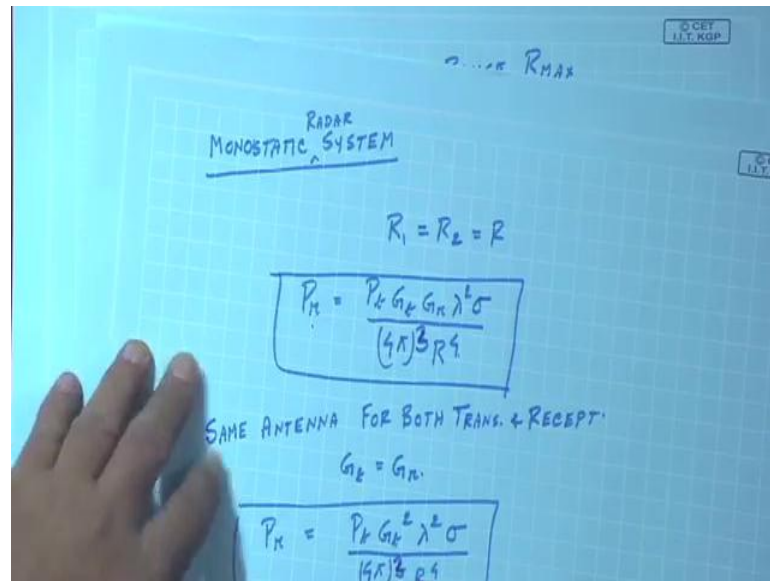 © CET
I.I.T. KGP
RMAX
RADAR
MONOSTATIC ^ SYSTEM
R₁ = R₂ = R
Pr = Pt Gt Gr λ² σ / (4π)³ R⁴
SAME ANTENNA FOR BOTH TRANS. & RECEPT.
Gt = Gr.
Pr = Pt Gt² λ² σ / (4π)³ R⁴